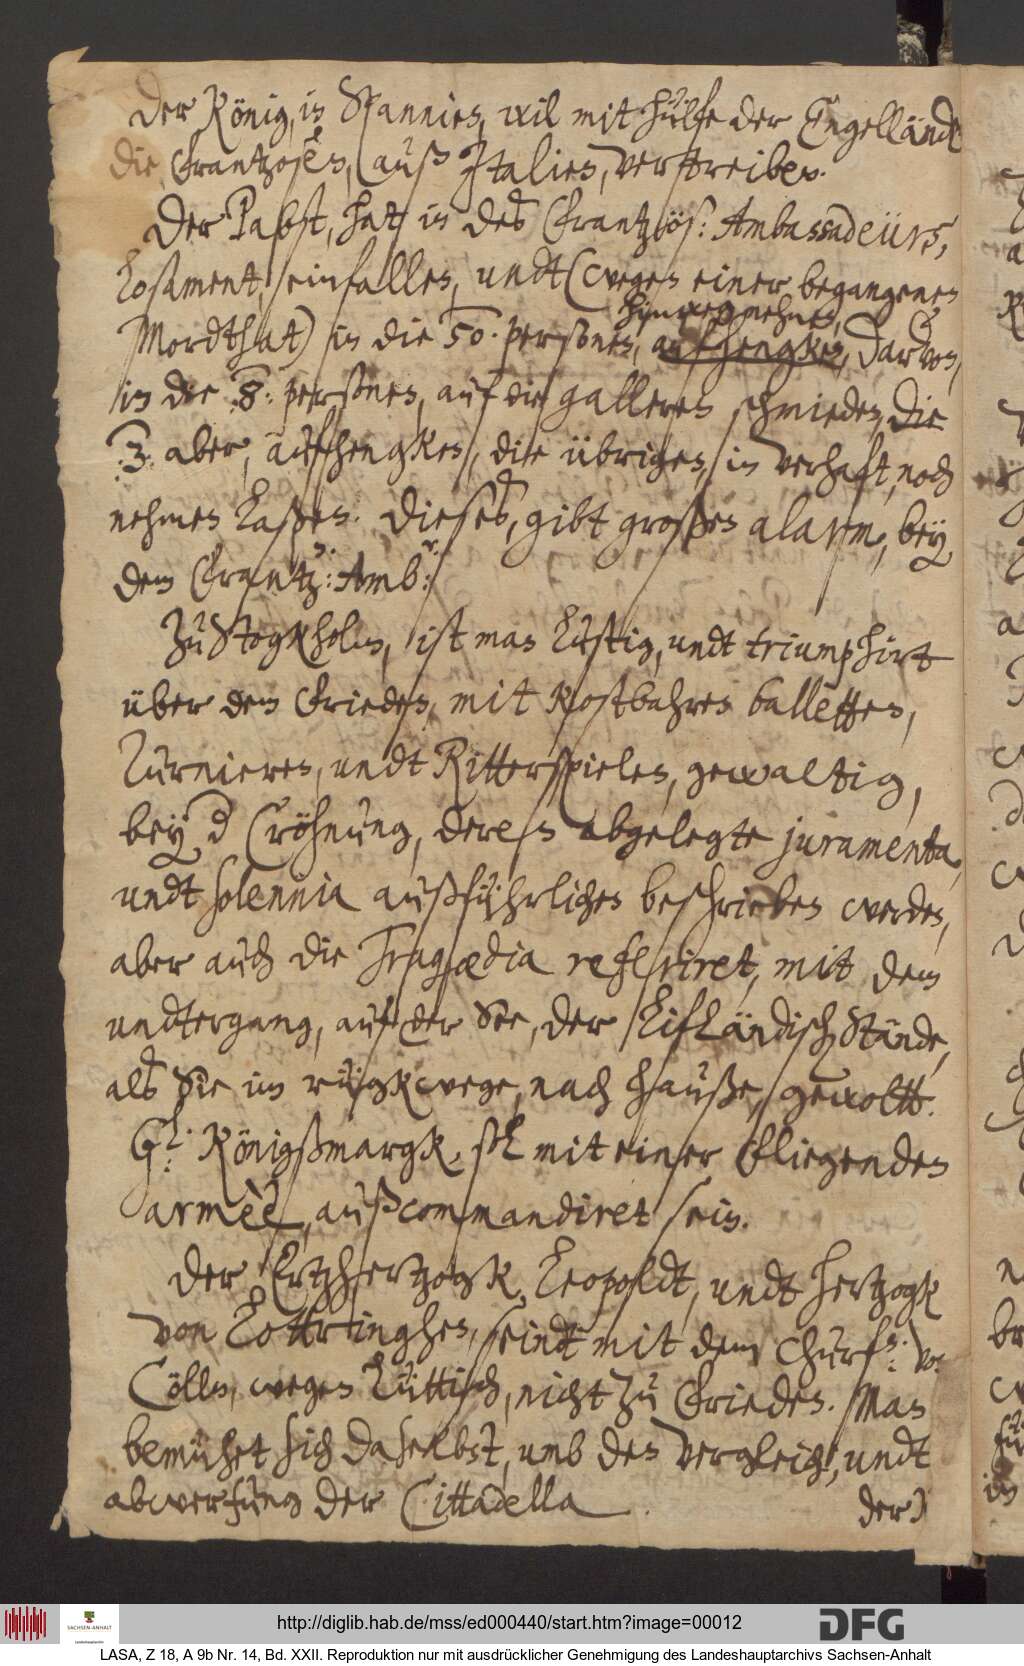 Der König, in Spannien, wil mit hülfe der Engelländ
die Frantzosen, auß Italien, vertreiben.
Der Pabst, hat in des Frantzös: Ambassadeürs,
Losament, einfallen, undt (wegen einer begangenen
Mordthat) in die 50. persohnen, aufhengken, darvon,
hinwegnehmen,
in die 8. persohnen, auf die galleren schmieden, die
3. aber, aufhengken, die übrigen, in verhaft, noch
nehmen laßen. Dieses, gibt großen alarm, bey
dem Frantz: Amb:
Zu Stogkholm, ist man lustig, undt triumphirt
über dem Frieden, mit kostbahren balletten,
Turnieren, undt Ritterspielen, gewaltig,
bey d Cröhnung, deren abgelegte juramenta,
undt solennia außführlichen beschrieben werden,
aber auch die Tragœdia referiret, mit dem
undtergang, auf der See, der Lifländisch Stände,
als Sie im rügkwege, nach hauße, gewoltt.
Gl: Königßmargk, sol mit einer fliegenden
armèè, außcommandiret sein.
Der Ertzhertzogk, Leopoldt, undt hertzogk
von Lottringhen, seindt mit dem Churf: vo:
Cölln, wegen Lüttich, nicht zu frieden. Man
bemühet sich daselbst, umb den vergleich, undt
abwerfung der Cittadella.
der
http://diglib.hab.de/mss/ed000440/start.htm?image=00012
SACHSEN-ANHALT
DFG
LASA, Z 18, A 9b Nr. 14, Bd. XXII. Reproduktion nur mit ausdrücklicher Genehmigung des Landeshauptarchivs Sachsen-Anhalt